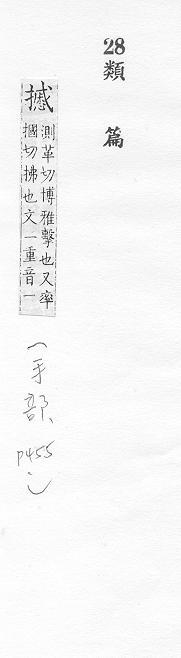 28類篇
撼
測革切博雅擊也又率
摑切拂也文一重音一
(手部、
P455)